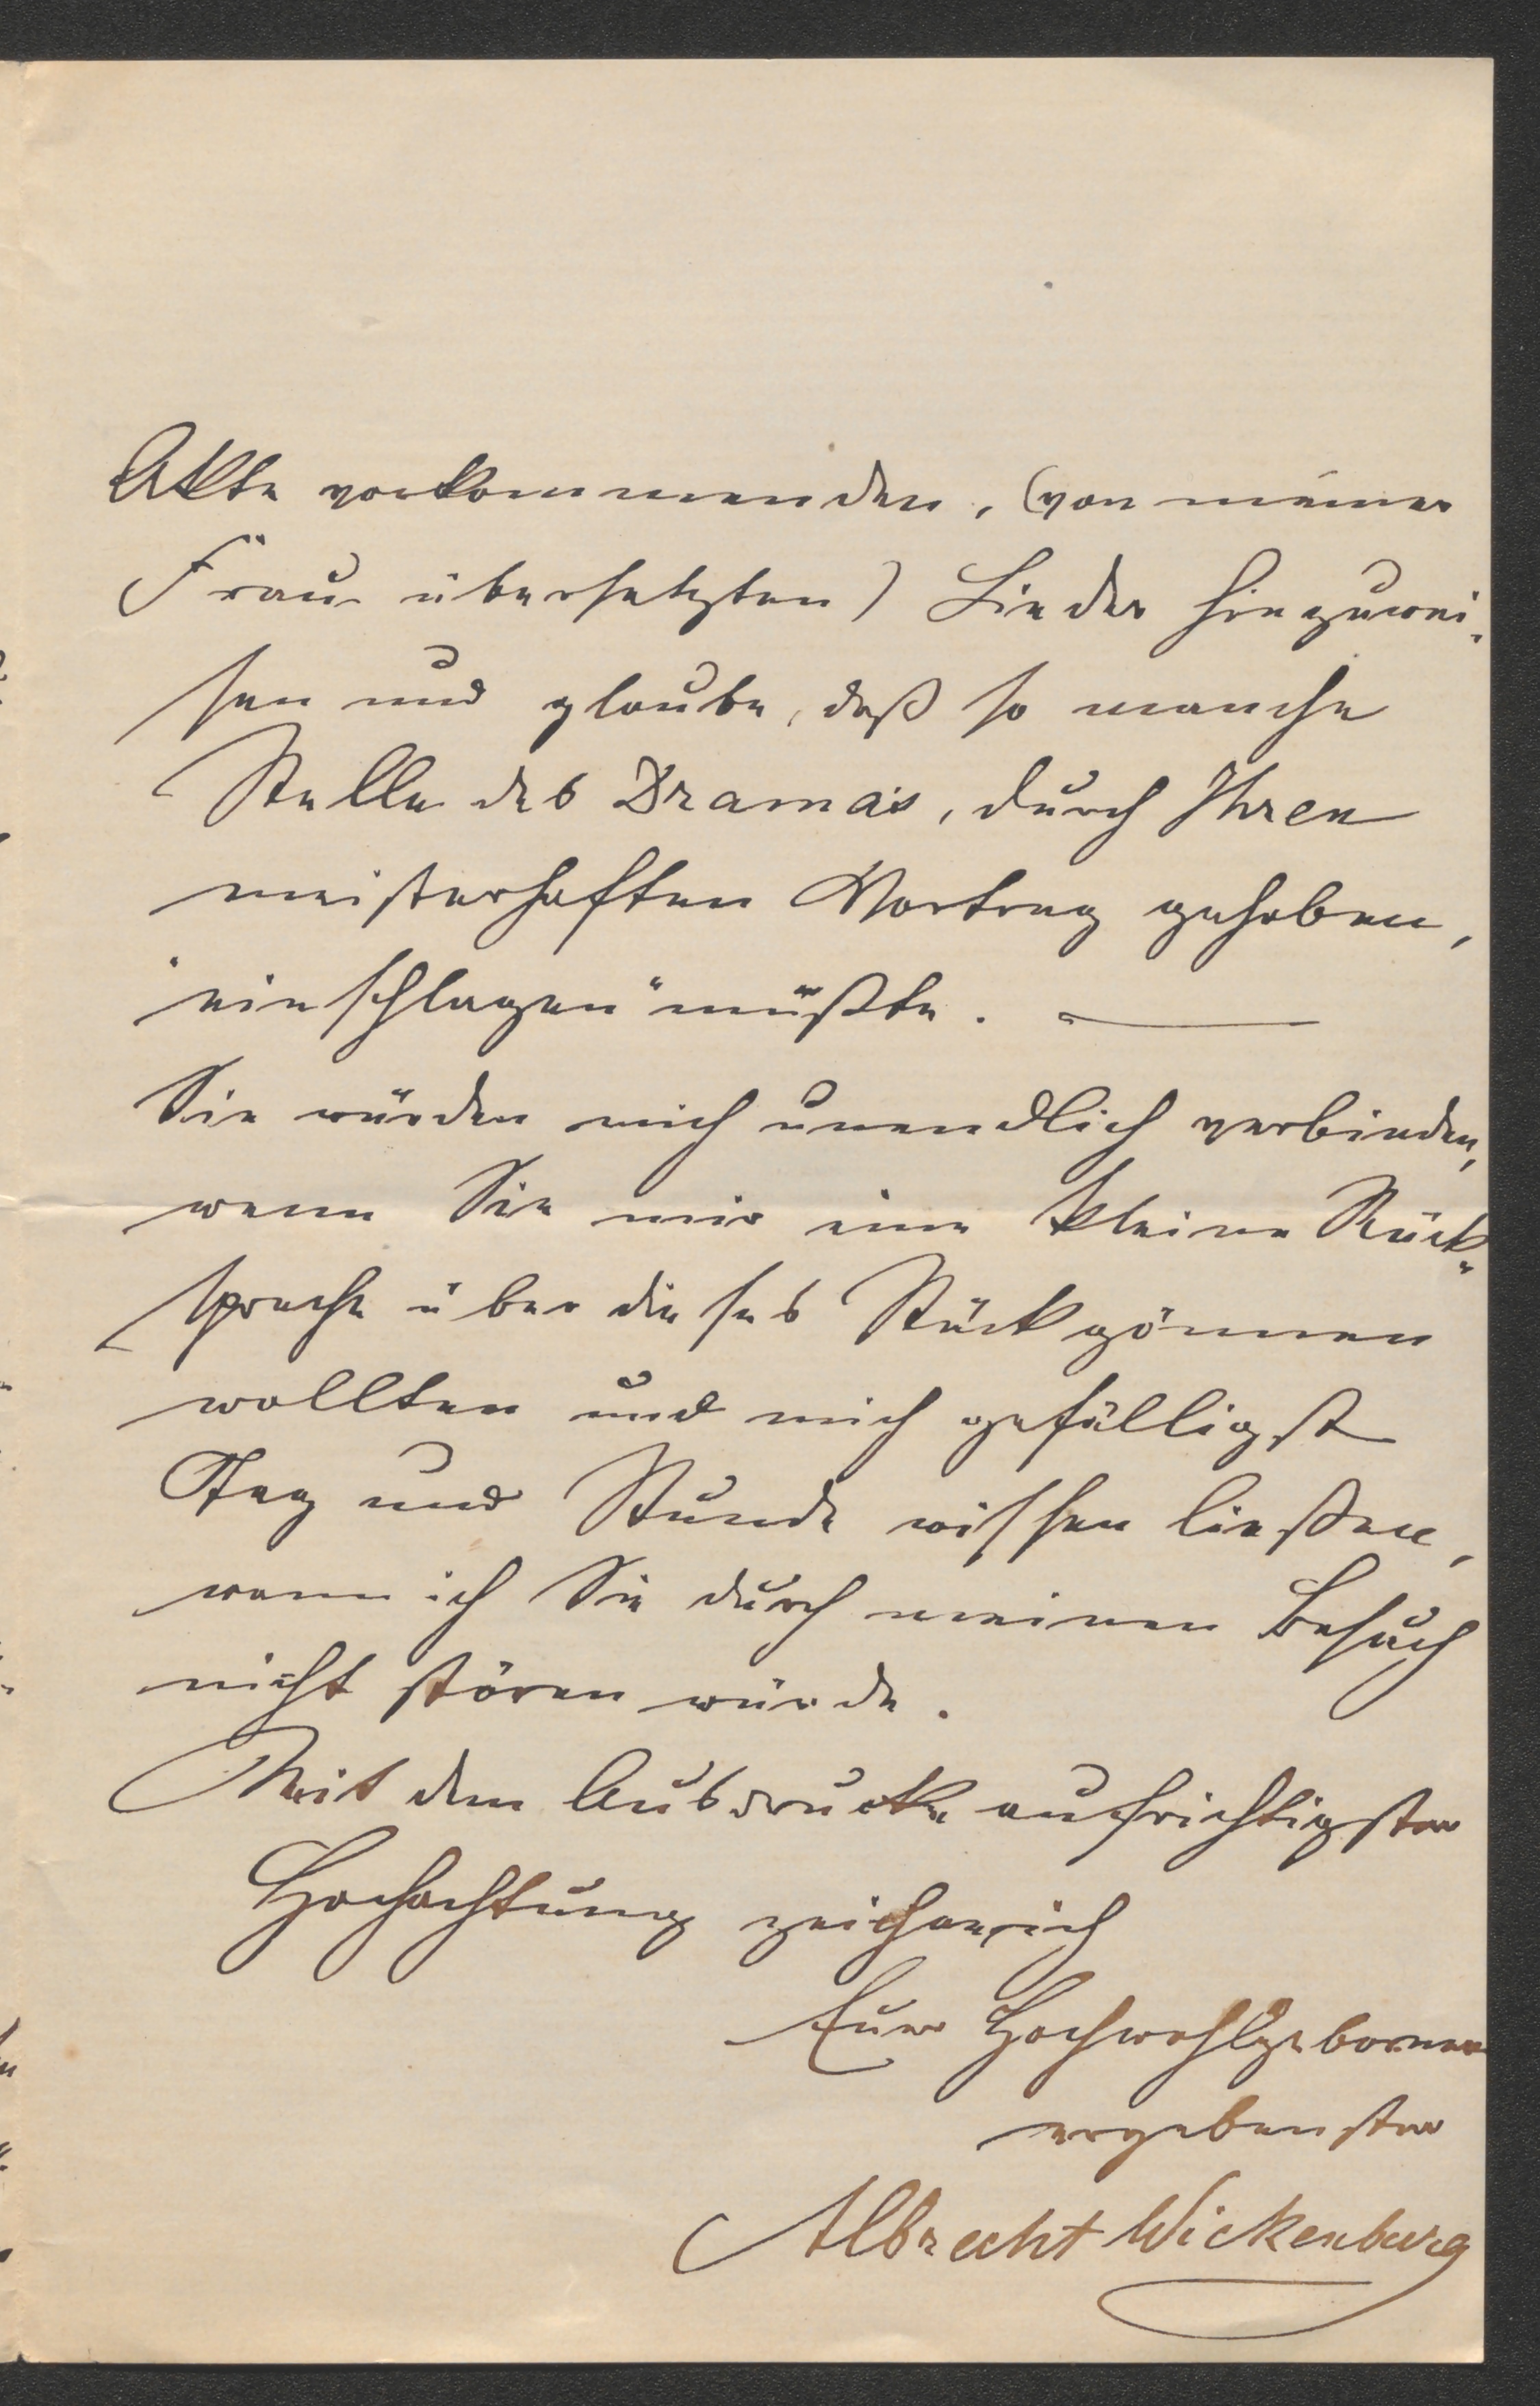 Akte vorkommenden, (von meiner
Frau übersetzten) Lieder hinzuwei-
sen und glaube, daß so manche
Stelle des Drama's, durch Ihren
meisterhaften Vortrag gehoben,
"einschlagen" müßte. —
Sie würden mich unendlich verbinden,
wenn Sie mir eine kleine Rück-
sprache über dieses Stück gönnen
wollten und mich gefälligst
Tag und Stunde wissen ließen,
wann ich Sie durch meinen Besuch
nicht stören würde.
Mit dem Ausdrucke aufrichtigster
Hochachtung zeichne ich
Euer Hochwohlgeboren
ergebenster
Albrecht Wickenburg